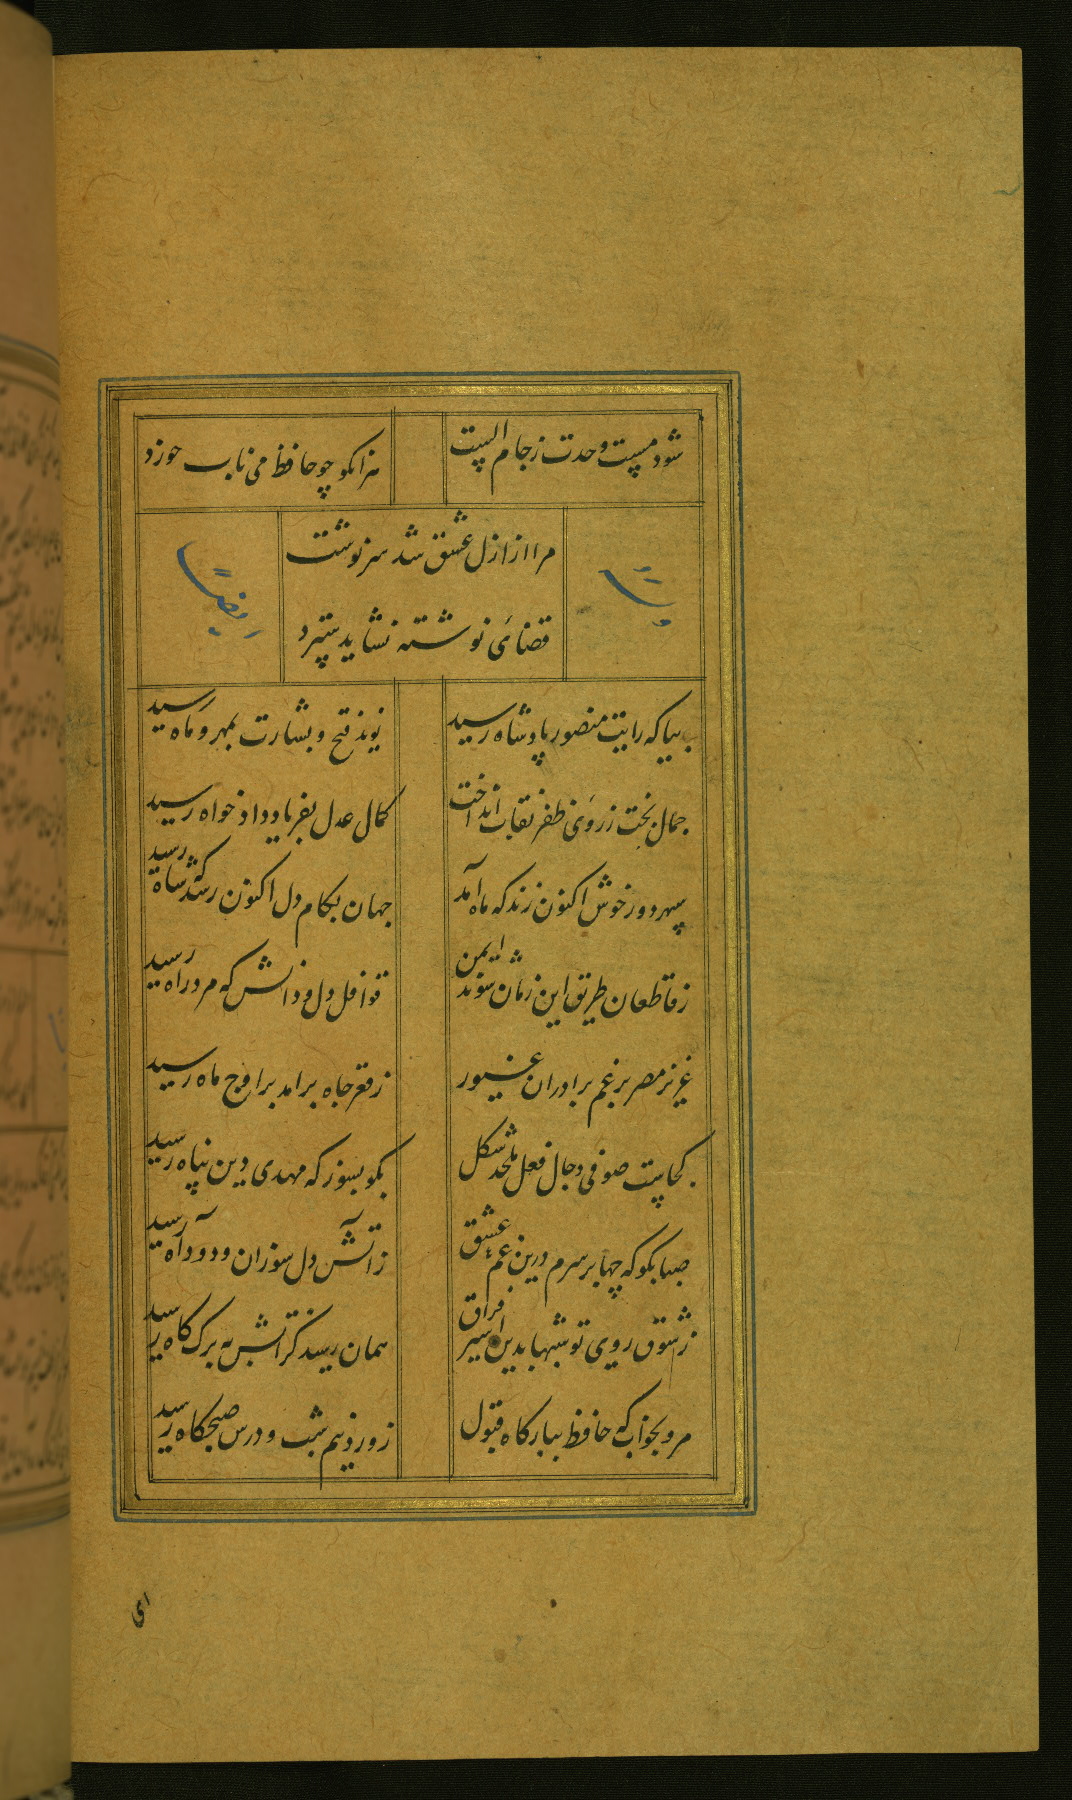 شود مست وحدت ز جام الست هر انکو چو حافظ می ناب خورد
مرا از ازل عشق شد سرنوشت
وله ایضا
قضای نوشته نشاید سترد
بیا که رایت منصور پادشاه رسید نوید فتح و بشارت بمهر و ماه رسید
جمال بخت ز روی ظفر نقاب انداخت کمال عدل بفریاد دادخواه رسید
سپهر دور خوش اکنون زند که ماه آمد جهان بکام دل اکنون رسد که شاه رسید
ز قاطعان طریق این زمان شوند ایمن قوافل دل و دانش که مرد راه رسید
عزیز مصر برغم برادران غیور ز قعر چاه برامد براوج ماه رسید
کجاست صوفی دجال فعل ملحد شکل بکو بسوز که مهدی دین پناه رسید
صبا بکو که چها بر سرم درین غم عشق ز آتش دل سوزان و دود آه رسید
ز شوق روی تو شبها بدین اسیر فراق همان رسید کز اتش به برک کاه رسید
مرو بخواب که حافظ ببارکاه قبول ز ورد نیم شب و درس صبحکاه رسید
ای